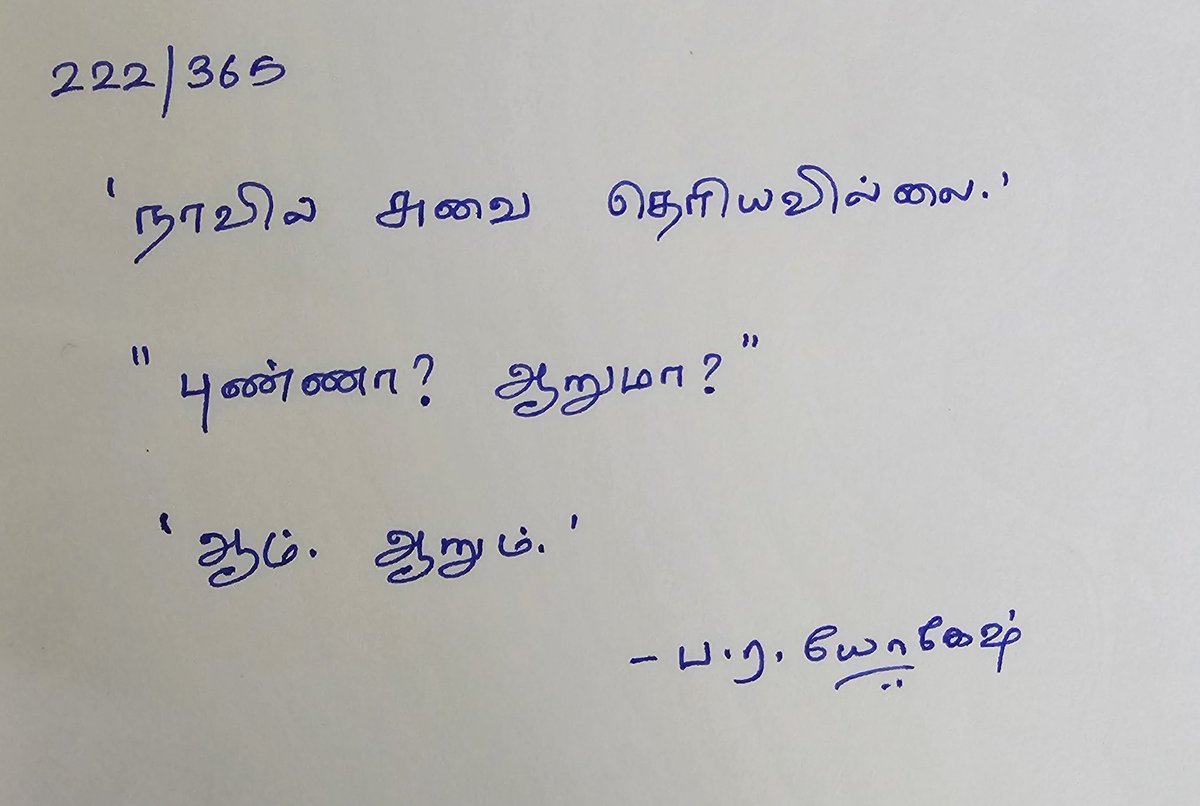 222/365
'நாவில் சுவை தெரியவில்லை.'
"புண்ணா? ஆறுமா?"
'ஆம். ஆறும்.'
- ப.ர. யோகேஷ்